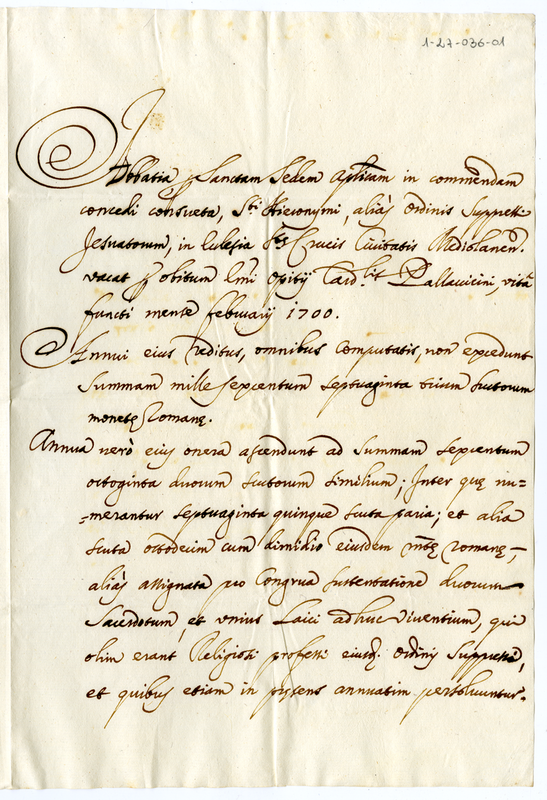 1-27-036-01
Abbatia p Sanctam Sedem Aplicam in commendam
concedi consueta, Sti Hieronymi, alias Ordinis Suppressi
Jesuatorum, in Ecclesia Stę Crucis Civitatis Mediolanen.
vacat p obitum Emi Opitij Cardlis Pallavicini, vita
functi mense februarij 1700.
Annui eius reditus, omnibus computatis, non excedunt
Summam mille sexcentum septuaginta trium scutorum
monetę Romanę.
Annua verò eius onera ascendunt ad Summam sexcentum
octoginta duorum scutorum similium; Inter quę nu=
=merantur septuaginta quinque scuta paria; et alia
scuta octodecim cum dimidio eiusdem mtę romanę,
alias assignata pro Congrua sustentatione duorum
Sacerdotum, et unius Laici adhuc viventium, qui
olim erant Religiosi professi eiusd. Ordinis Suppressi,
et quibus etiam in pręsens annuatim persolvuntur.